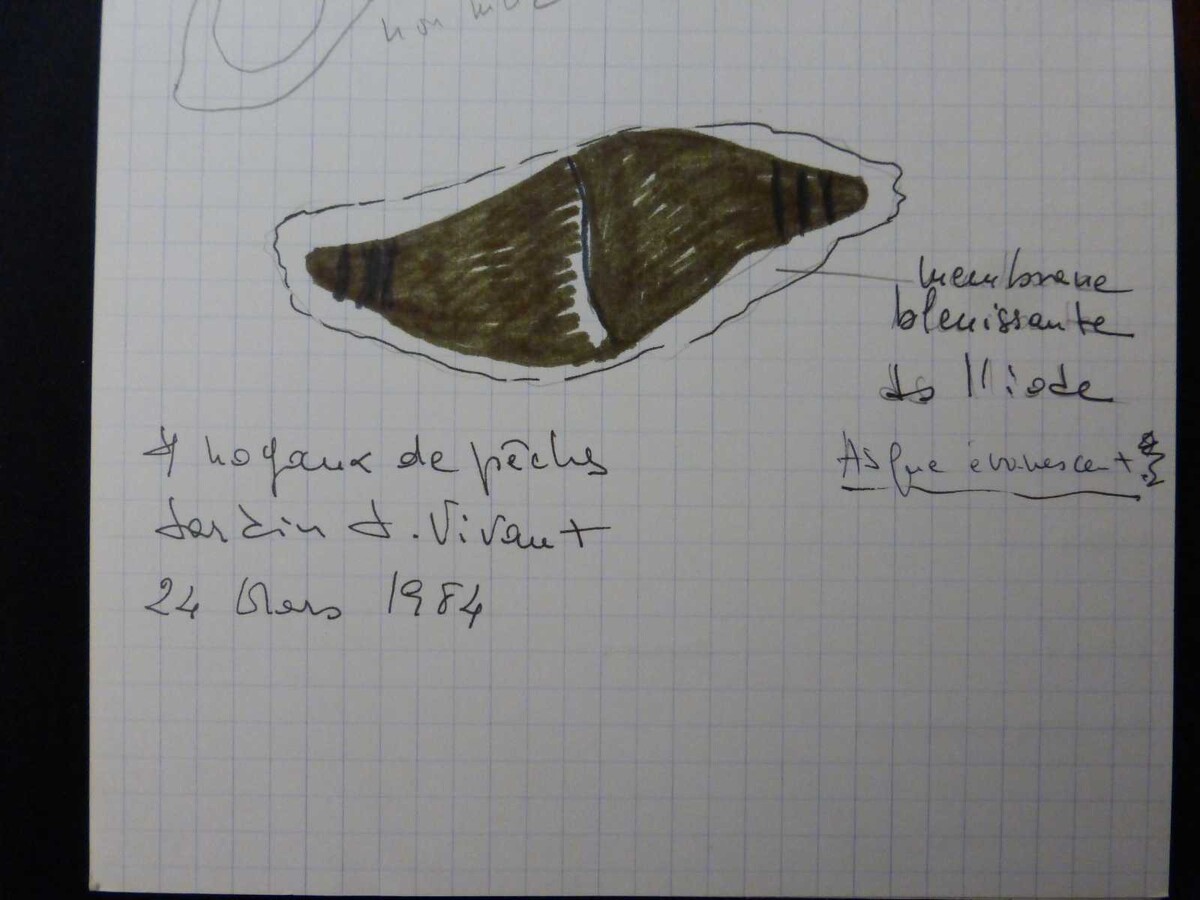 non
membrane
bleuissante
ds l'Iode
Asque évanescent
noyaux de pêches
Jardin J. Vivant
24 Mars 1984